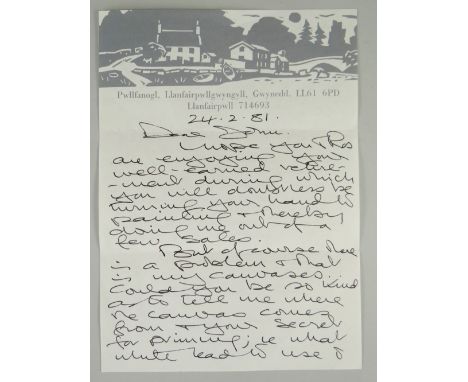 Pwllfanogl, Llanfairpwllgwyngyll, Gwynedd. LL61 6PD
Llanfairpwll 714693
24.2.81.
Dear John.
I hope you & Ros
are enjoying your
well-earned retire-
-ment during which
you will doubtless be
turning your hand to
painting & thereby
doing me out of a
few sales.
But of course there
is a problem & that
is my canvases...
Could you be so kind
as to tell me where
the canvas comes
from & your secret
for priming; ie what
white lead to use &